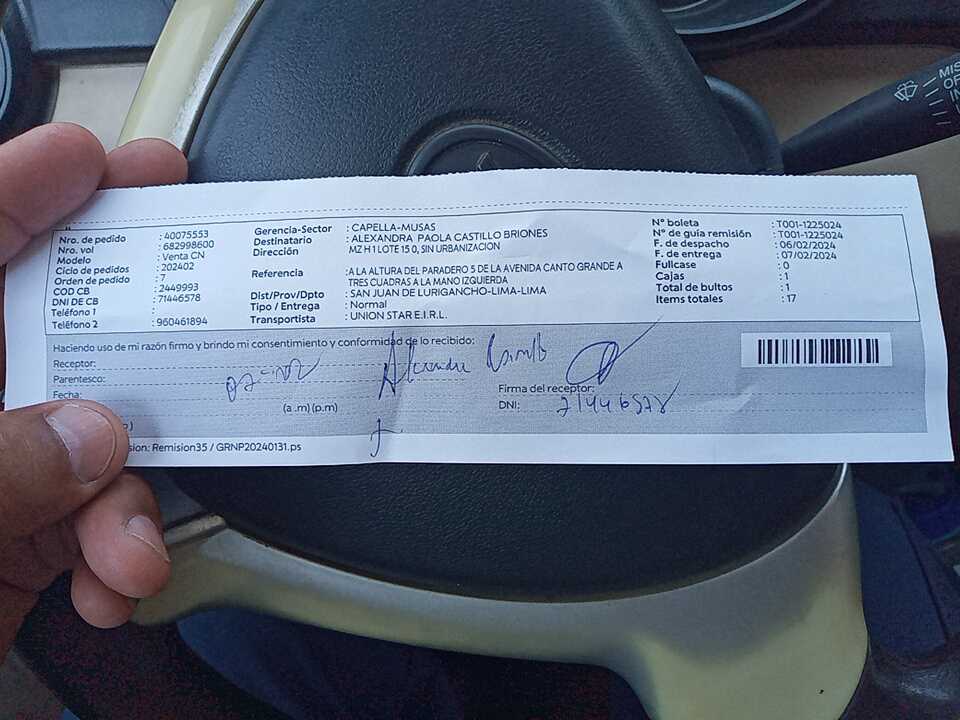 Nro. de pedido : 40075553
Nro. vol : 682998600
Modelo : Venta CN
Ciclo de pedidos : 202402
Orden de pedido : 7
COD CB : 2449993
DNI DE CB : 71446578
Teléfono 1 :
Teléfono 2 : 960461894
Gerencia-Sector : CAPELLA-MUSAS
Destinatario : ALEXANDRA PAOLA CASTILLO BRIONES
Dirección MZ H 1 LOTE 15 0, SIN URBANIZACION
Referencia : A LA ALTURA DEL PARADERO 5 DE LA AVENIDA CANTO GRANDE A
TRES CUADRAS A LA MANO IZQUIERDA
Dist/Prov/Dpto : SAN JUAN DE LURIGANCHO-LIMA-LIMA
Tipo / Entrega : Normal
Transportista : UNION STAR E.I.R.L.
N° boleta : T001-1225024
N° de guia remisión : T001-1225024
F. de despacho : 06/02/2024
F. de entrega : 07/02/2024
Fullcase : 0
Cajas : 1
Total de bultos : 1
Items totales : 17
Haciendo uso de mi razón firmo y brindo mi consentimiento y conformidad de lo recibido:
Receptor:
Parentesco:
Fecha:
(a .m) (p.m)
Firma del receptor:
DNI: 71446578
sion: Remision35 / GRNP20240131.ps
MIS
OF
IN